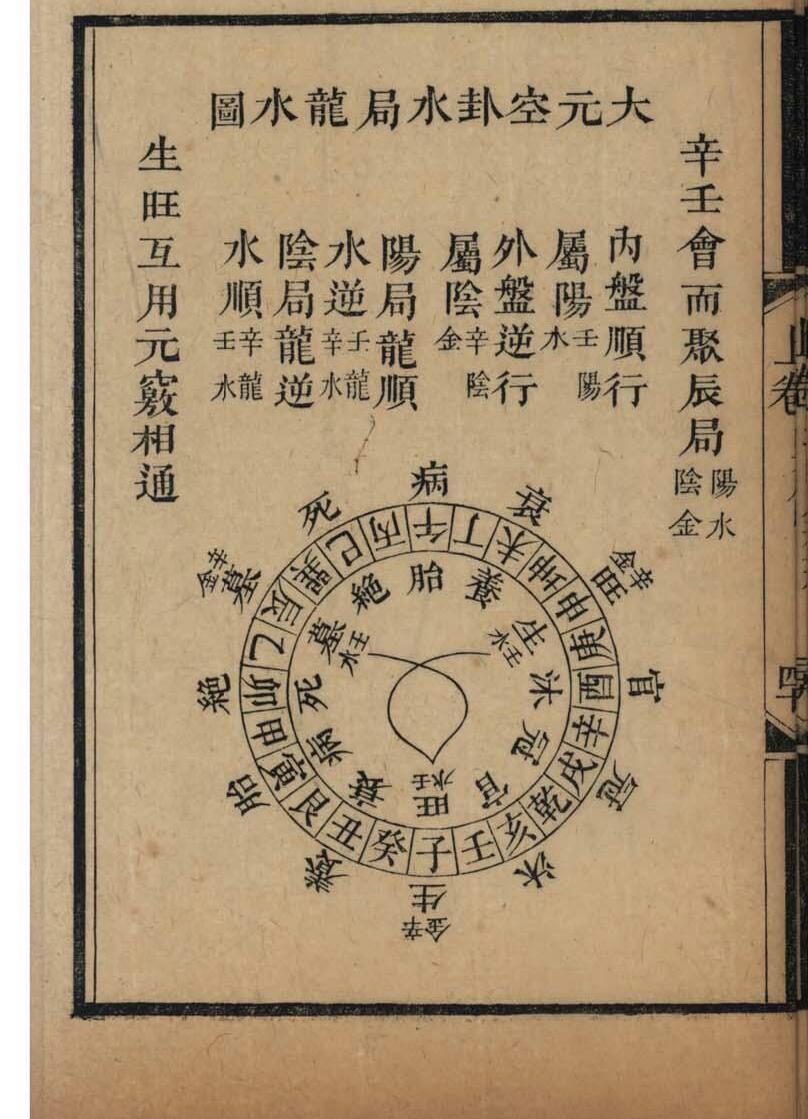 大元空卦水局龍水圖
辛壬會而聚辰局
陽水
陰金
內盤順行
屬陽
壬陽
水
外盤逆行
屬陰
辛陰
金
陽局龍順
水逆
壬龍
辛水
陰局龍逆
水順
辛龍
壬水
生旺互用元竅相通
病
衰
旺 辛金
官
冠
沐
生 辛金
養
胎
絕
墓 辛金
死
午丁未坤申庚酉辛戌乾亥壬子癸丑艮寅甲卯乙辰巽巳丙
胎
養
生 壬水
沐
冠
官
旺 壬水
衰
病
死
墓 壬水
絕
上卷